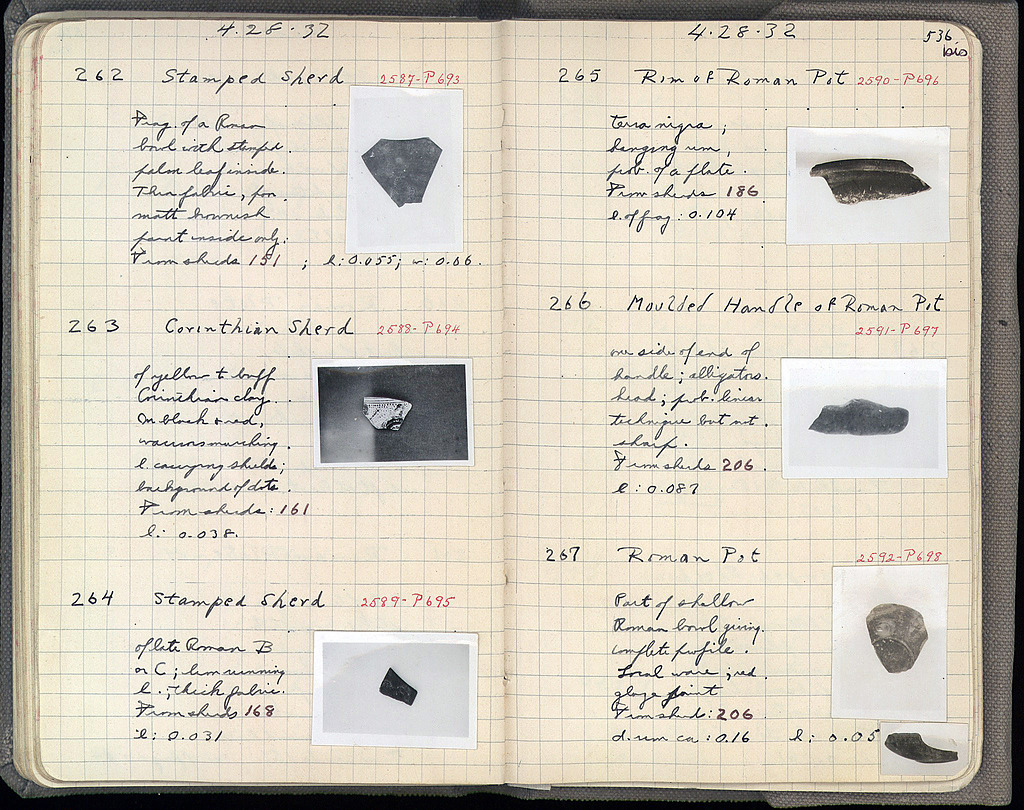 4.28.32
262 Stamped Sherd 2587-P693
Frag. of a Roman
bowl with stamped
palm leaf inside.
Thin fabric, poor
matt brownish
paint inside only.
From sherds 151 ; h: 0.055; w: 0.06.
263 Corinthian Sherd 2588-P694
of yellow to buff
Corinthian clay.
In black & red,
warriors marching
l. carrying shields;
background of dots.
From sherds: 161
l: 0.038.
264 Stamped Sherd 2589-P695
of late Roman B
or C; lion running
l.; thick fabric.
From sherds 168
l: 0.031
4.28.32
536
bis
265 Rim of Roman Pot 2590-P696
terra nigra;
hanging rim,
prob. of a plate.
From sherds 186
l. of frag: 0.104
266 Moulded Handle of Roman Pot
2591-P697
one side of end of
handle; alligators
head; prob. linear
technique but not
sharp.
From sherds 206.
l: 0.087
267 Roman Pot 2592-P698
Part of shallow
Roman bowl giving
complete profile.
Local ware; red
glaze paint
From sherds: 206
d. rim ca: 0.16 h: 0.05